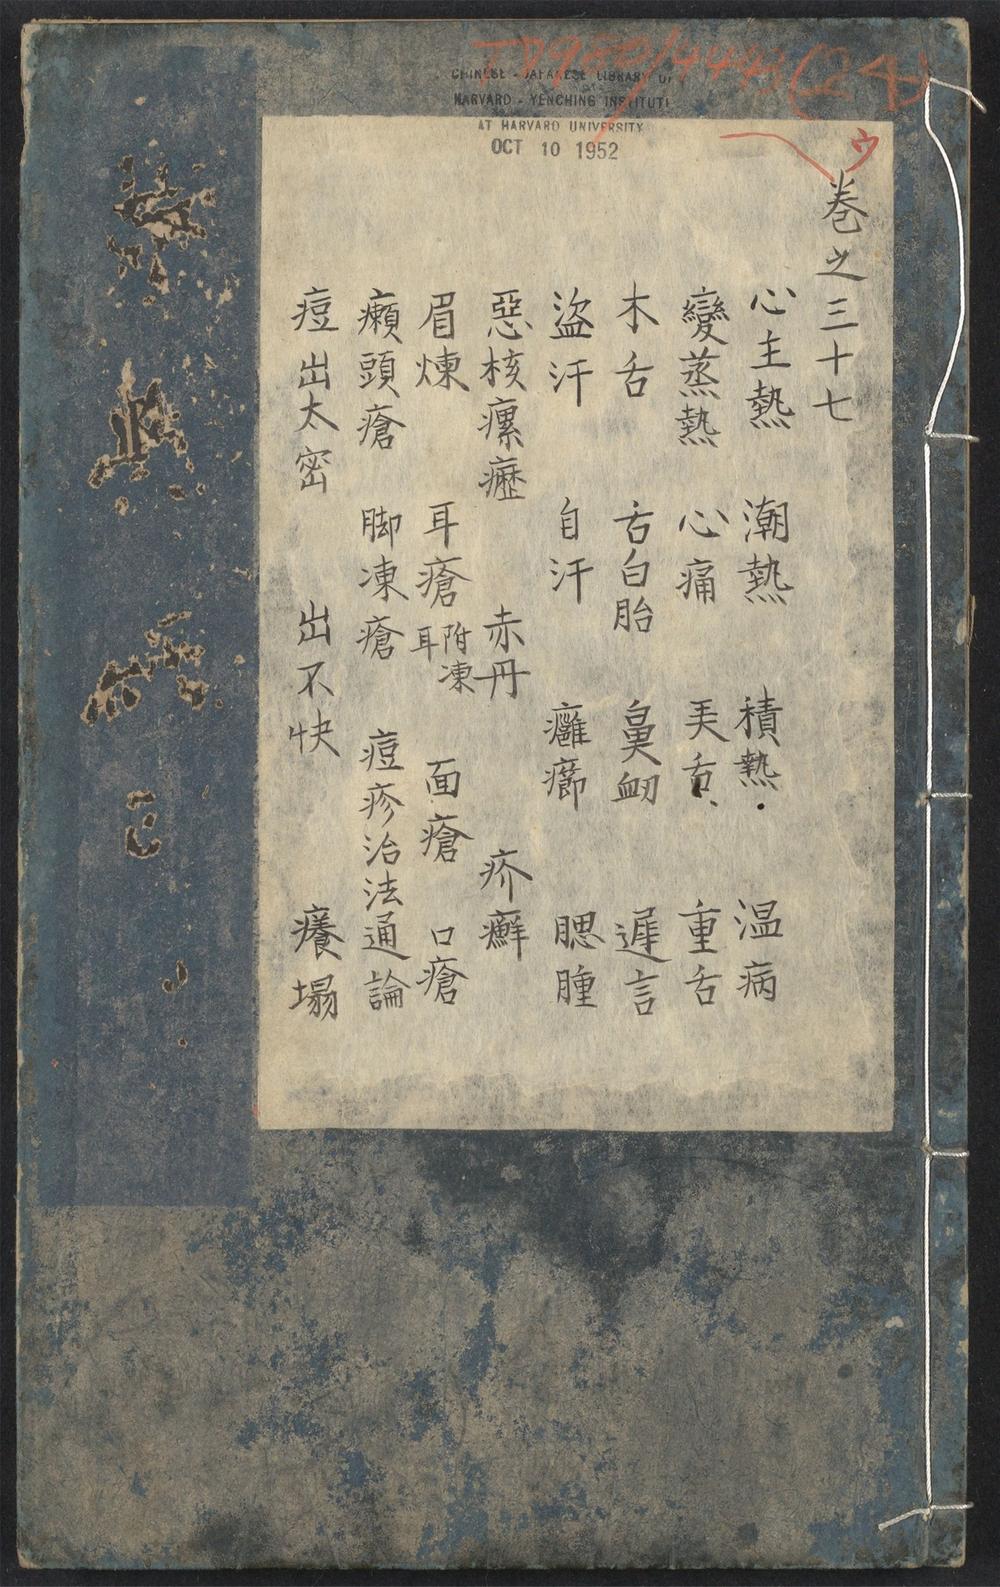 CHINESE - JAPANESE LIBRARY OF
HARVARD - YENCHING INSTITUTE
AT HARVARD UNIVERSITY
OCT 10 1952
卷之三十七
心主熱 潮熱 積熱 温病
變蒸熱 心痛 弄舌 重舌
木舌 舌白胎 鼻衂 遲言
盜汗 自汗 癰癤 腮腫
惡核瘰癧 赤丹 疥癬
眉煉 耳瘡 附凍耳 面瘡 口瘡
癩頭瘡 脚凍瘡 痘疹治法通論
痘出太密 出不快 癢塌